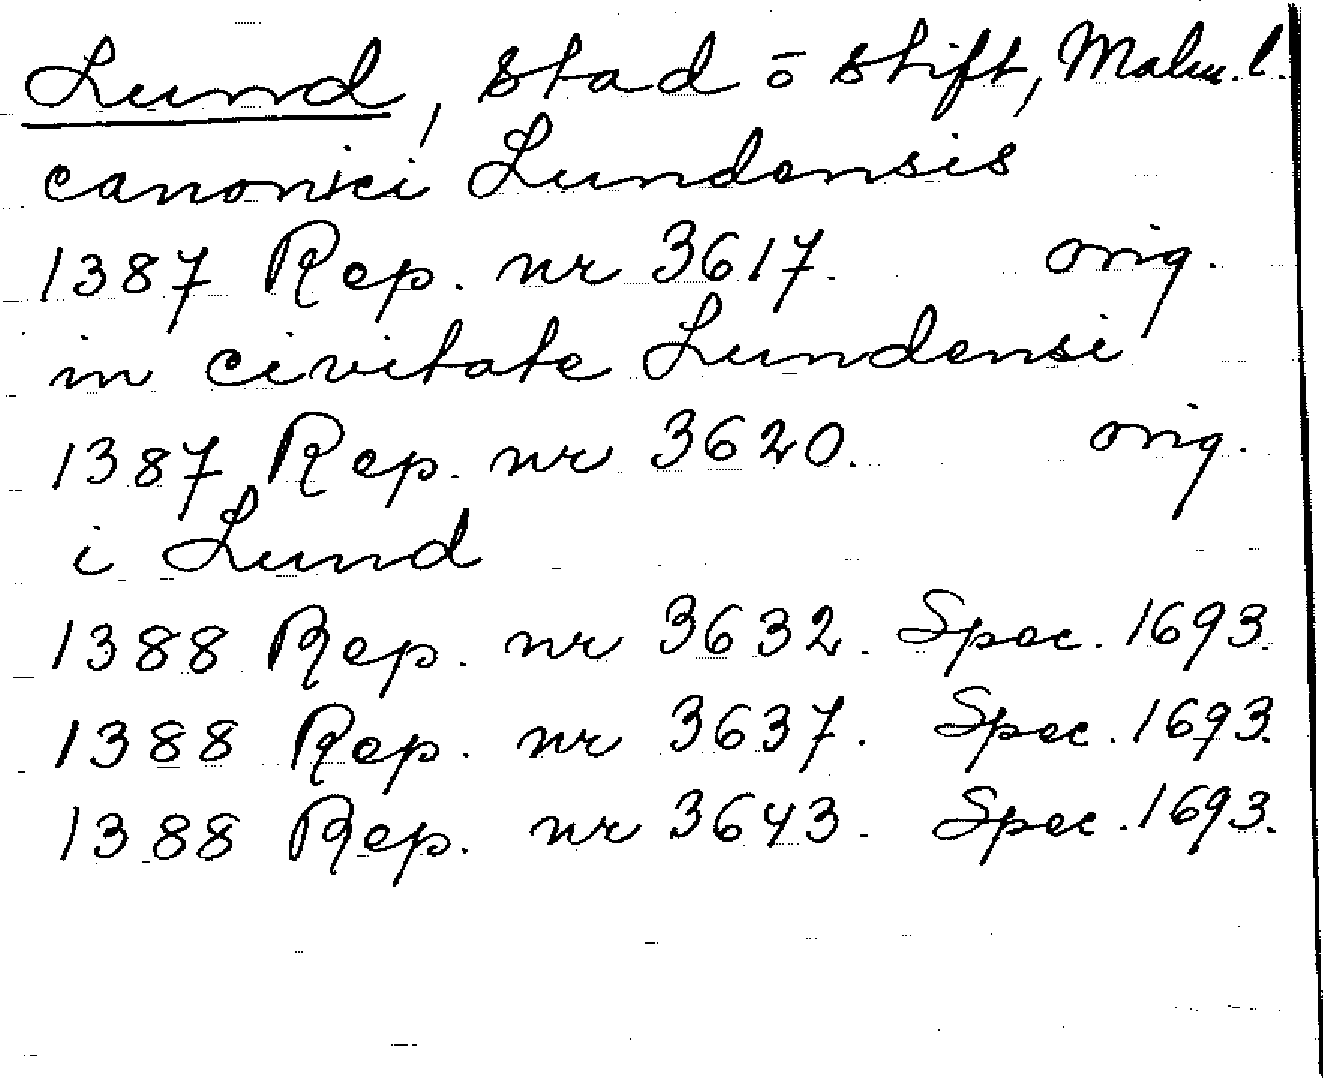 Lund, stad o stift, Malm. l.
canonici Lundensis
1387 Rep. nr 3617. orig.
in civitate Lundensi
1387 Rep. nr 3620. orig.
i Lund
1388 Rep. nr 3632. Spec. 1693.
1388 Rep. nr 3637. Spec. 1693.
1388 Rep. nr 3643. Spec. 1693.